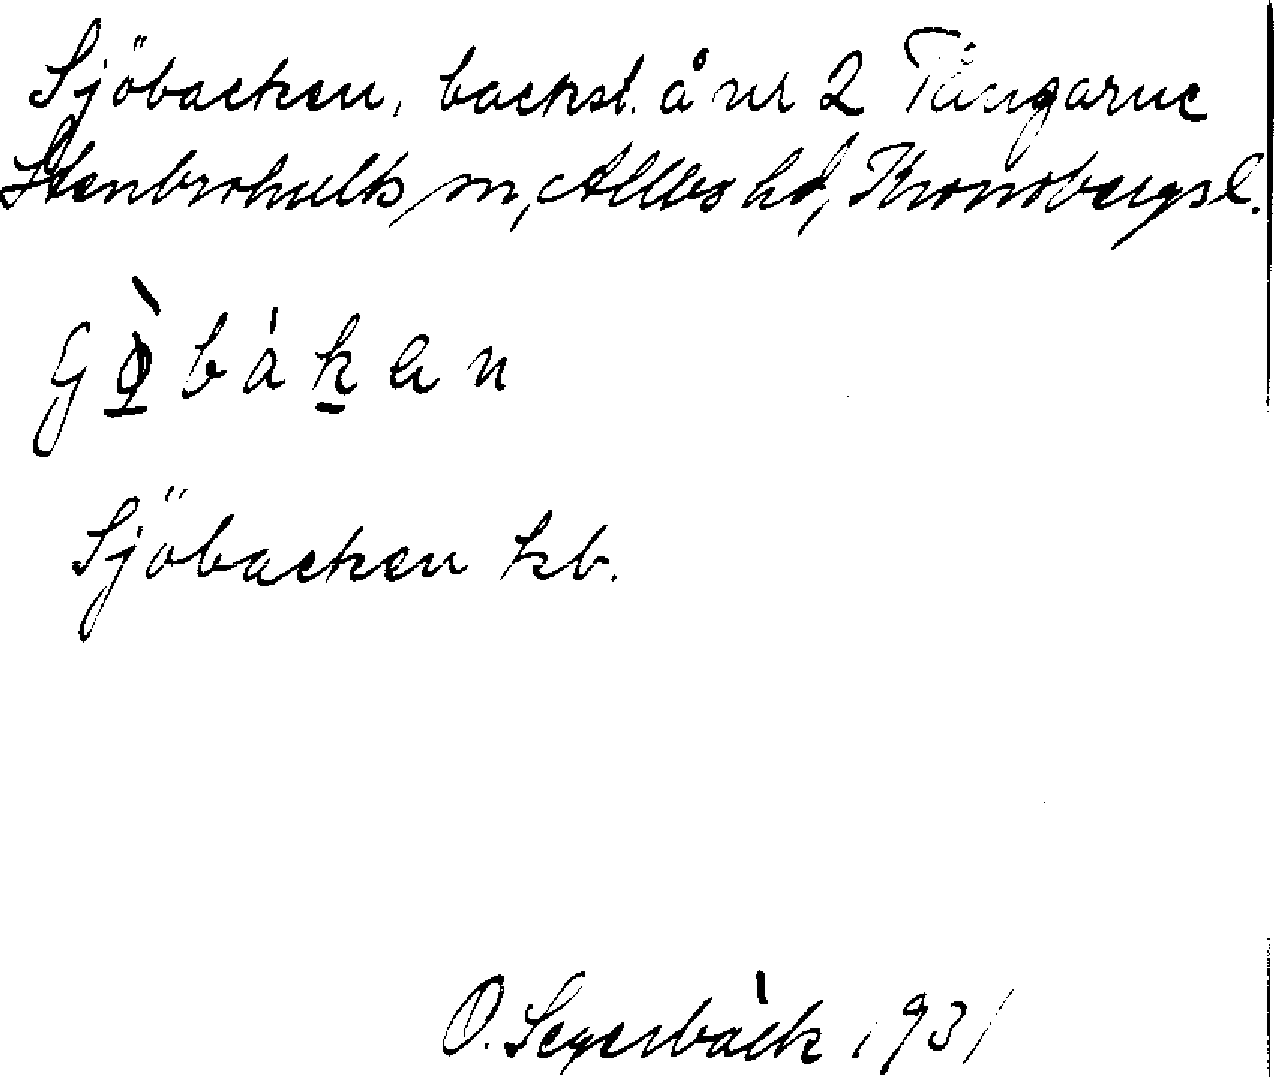 Sjöbacken, backst. å nr 2 Tångarne
Stenbrohults sn, Allbo hd, Kronobergs l.
Sjöbacken kb.
O. Segerbäck 1931